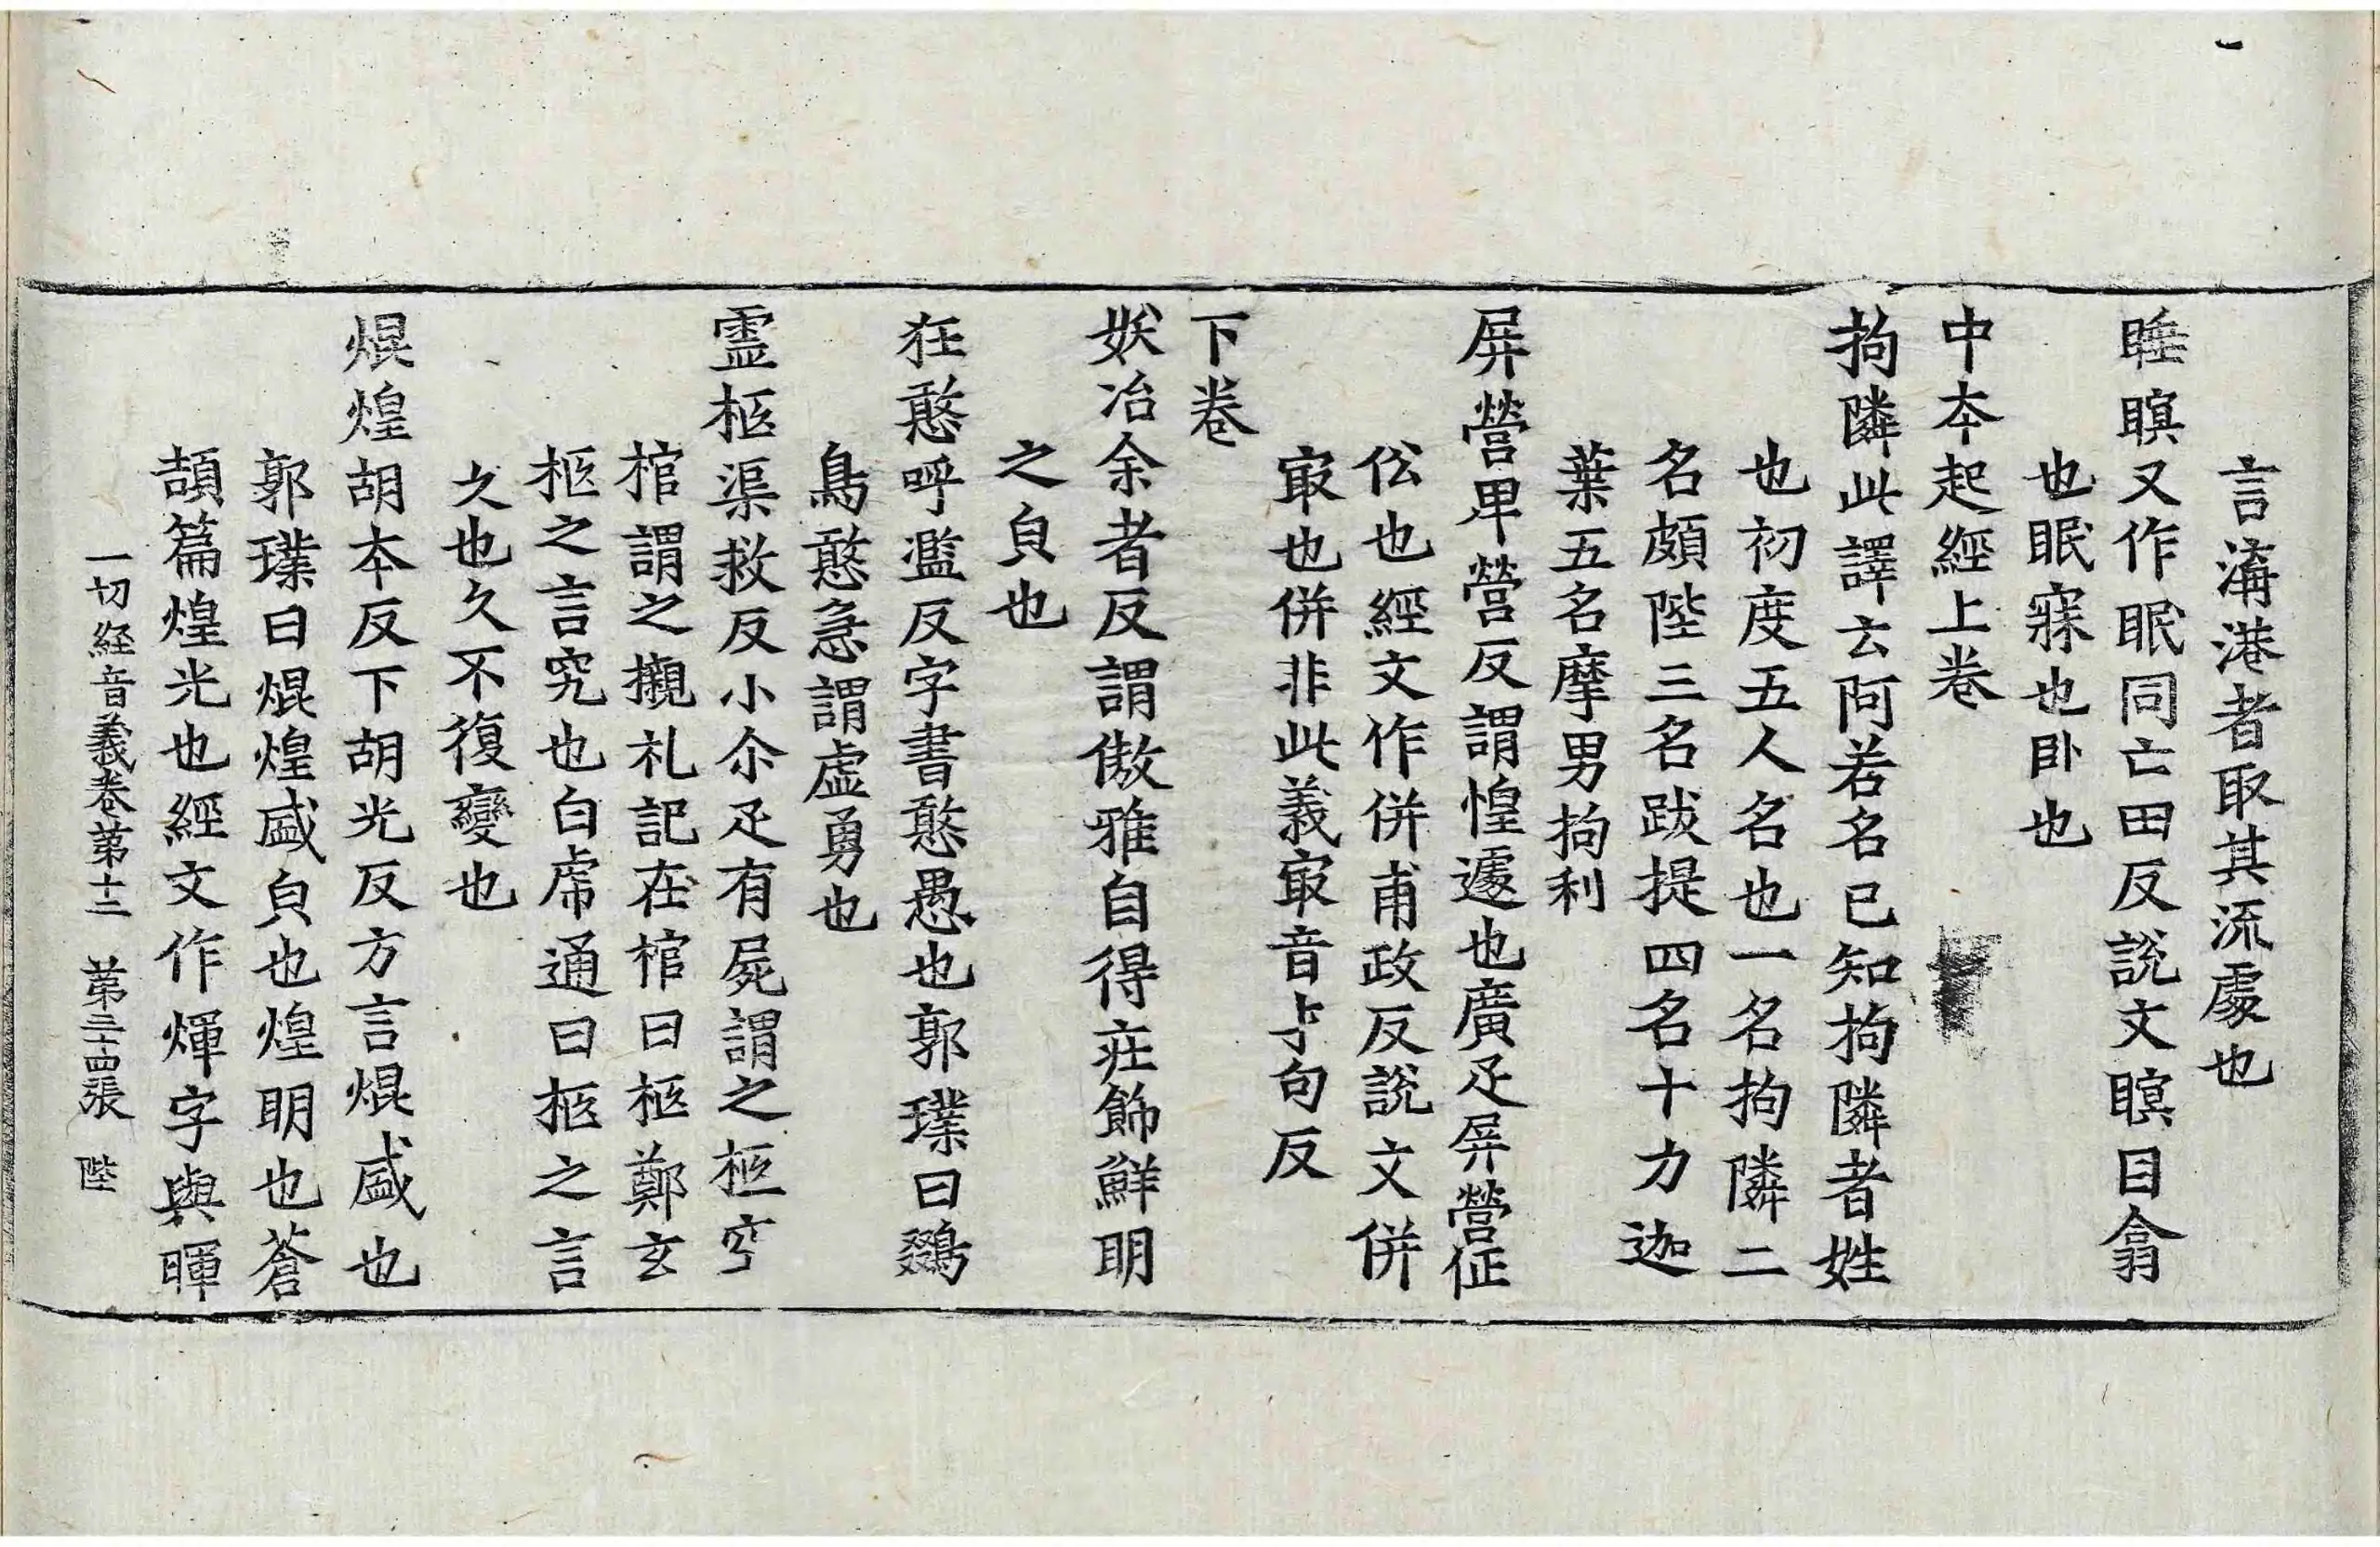 言溝港者取其流處也
睡瞑又作眠同亡田反說文瞑目翕
也眠寐也卧也
中夲起經上卷
拘隣此譯云阿若名已知拘隣者姓
也初度五人名也一名拘隣二
名頗陛三名跋提四名十力迦
葉五名摩男拘利
屏營卑營反謂惶遽也廣疋屏營伀
伀也經文作併甫政反說文併
㝡也併非此義㝡音才句反
下卷
妖冶余者反謂傲雅自得莊飾鮮明
之皃也
狂憨呼濫反字書憨愚也郭璞曰鷄
鳥憨急謂虛勇也
靈柩渠救反小尒疋有屍謂之柩空
棺謂之櫬礼記在棺曰柩鄭玄
柩之言究也白虎通曰柩之言
久也久不復變也
焜煌胡夲反下胡光反方言焜盛也
郭璞曰焜煌盛皃也煌明也蒼
頡篇煌光也經文作煇字與暉
一切経音義卷第十三 第三十四張 陛